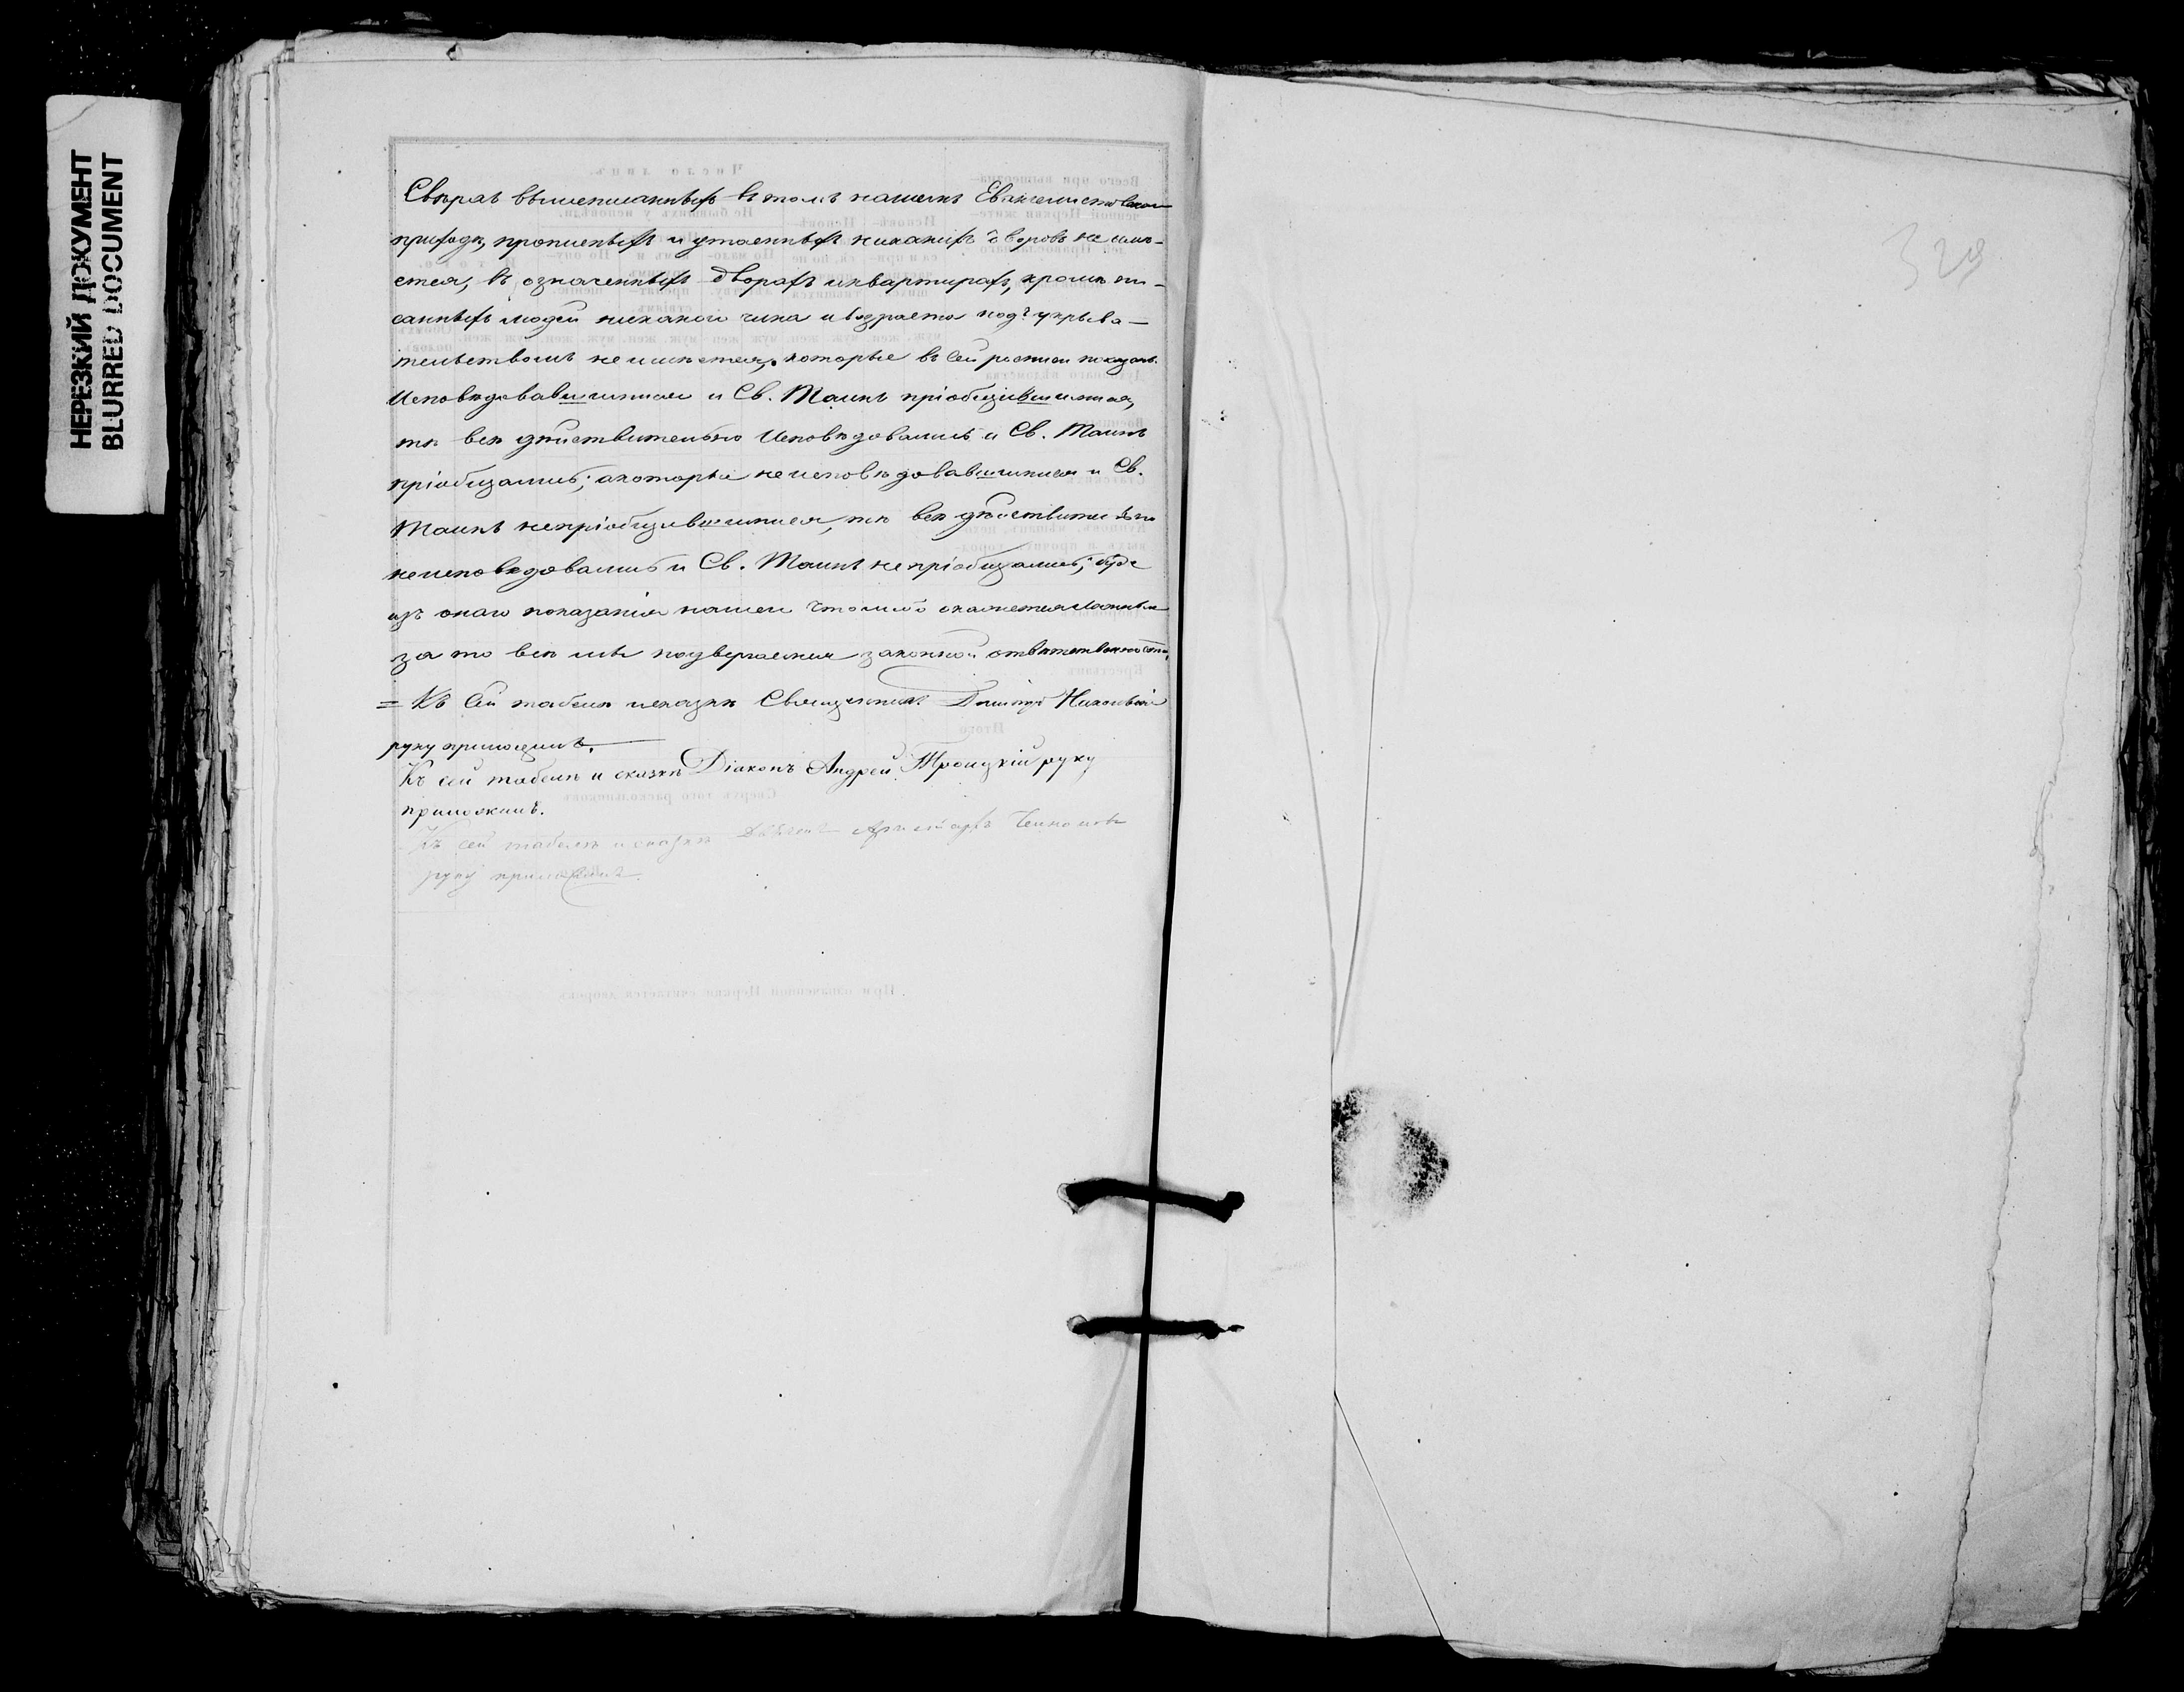 НЕРЕЗКИЙ ДОКУМЕНТ
BLURRED DOCUMENT
Сверхъ вышеписанныхъ въ томъ нашемъ Евангелистовскомъ
приходѣ, прописныхъ и утаенныхъ никакихъ дворовъ не имѣ-
ется, въ означенныхъ дворахъ и квартирахъ, кромѣ пи-
санныхъ людей никакого чина и возраста подъ укрыва-
тельствомъ не имѣется, которые въ сей росписи показаны
Исповѣдовавшимися и Св. Таинъ пріобщившимися,
тѣ всѣ дѣйствительно Исповѣдовались и Св. Таинъ
пріобщались; а которые неисповѣдовавшимися и Св.
Таинъ непріобщившимися, тѣ всѣ дѣйствительно
неисповѣдовались и Св. Таинъ непріобщались; буде
изъ онаго показанія нашего что либо окажется ложнымъ
за то всѣ мы подвергаемся законной отвѣтственности,
= Къ сей табели и сказкѣ Священникъ Димитрій
руку приложилъ.
Къ сей табели и сказкѣ Діаконъ Андрей Троицкій руку
приложилъ.
Къ сей табели и сказкѣ Дьячекъ Аристархъ
руку приложилъ.
329